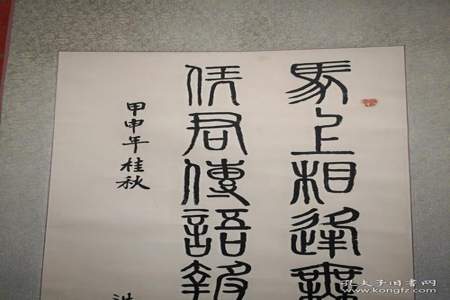 馬上相逢無
凭君傳語報
甲申年桂秋
孔夫子旧书网
www.kongfz.com